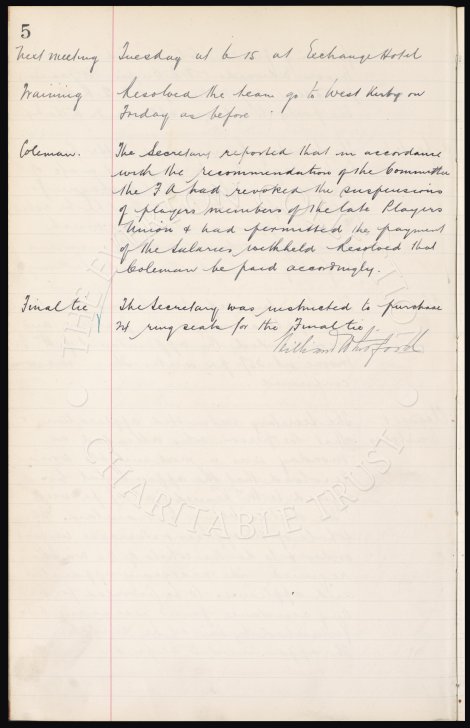 5
Next meeting Tuesday at 6 15 at Exchange Hotel
Training Resolved the team go to West Kirby on
Friday as before.
Coleman. The Secretary reported that in accordance
with the recommendation of the Committee
the F A had revoked the suspensions
of players members of the late Players
Union & had permitted the payment
of the Salaries withheld Resolved that
Coleman be paid accordingly.
Final tie The Secretary was instructed to purchase
24 ring seats for the Final tie
William
THE EV
CHARITABLE TRUST